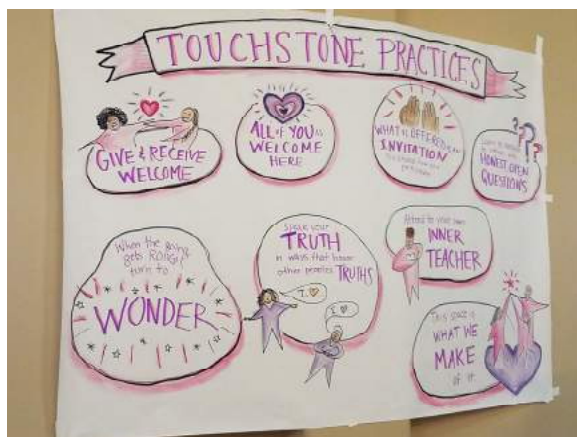 TOUCHSTONE PRACTICES
GIVE & RECEIVE
WELCOME
ALL of YOU is
WELCOME
HERE
WHAT is OFFERED is an
INVITATION
HONEST, OPEN
QUESTIONS
When the going
gets Rough,
turn to
WONDER
Speak your
TRUTH
in ways that honor
other people's TRUTHS
I
I
Attend to your own
INNER
TEACHER
This space is
WHAT WE
MAKE
of it